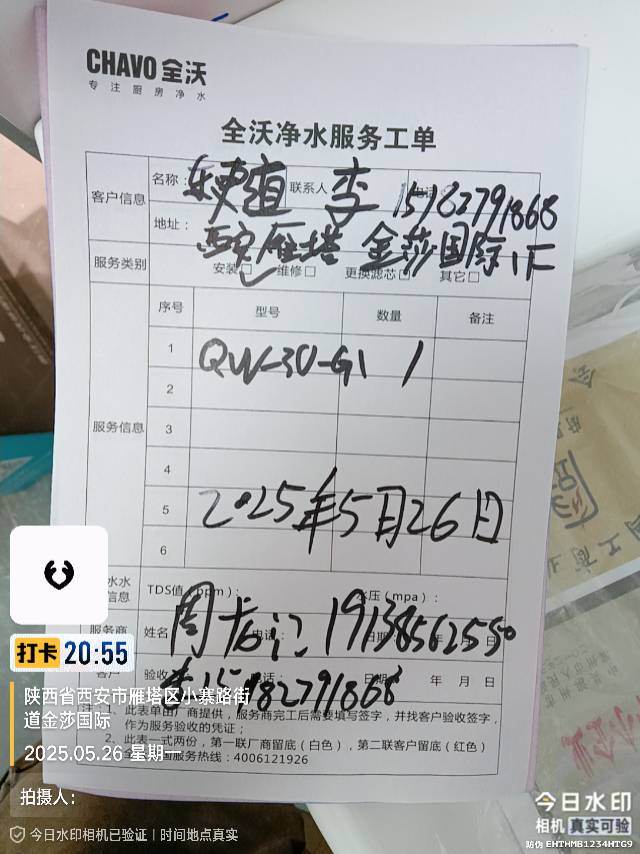 CHAVO 全沃
专注厨房净水
全沃净水服务工单
客户信息 名称： 联系人 李 15182791868
地址： 西安雁塔 金莎国际1F
服务类别 安装□ 维修□ 更换滤芯□ 其它□
服务信息 序号 型号 数量 备注
1 QW-30-G1 1
2
3
4
5 2025年5月26日
6
水水 信息 TDS值（ppm）： 水压（mpa）：
服务商 姓名 周 电话： 19138562550 日期 年 月 日
客户 验收 李 15182791868 电话： 日期 年 月 日
注：1、此表单由厂商提供，服务商完工后需要填写签字，并找客户验收签字，
作为服务验收的凭证；
2、此表一式两份，第一联厂商留底（白色），第二联客户留底（红色）
国服务热线：4006121926
打卡 20:55
陕西省西安市雁塔区小寨路街
道金莎国际
2025.05.26 星期一
拍摄人：
今日水印相机已验证 | 时间地点真实
今日水印
相机 真实可验
防伪 EHTHMB1234HTG9